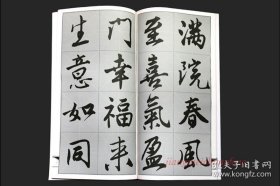 滿院春風
至喜氣盈
門幸福来
生意如同
孔夫子旧书网